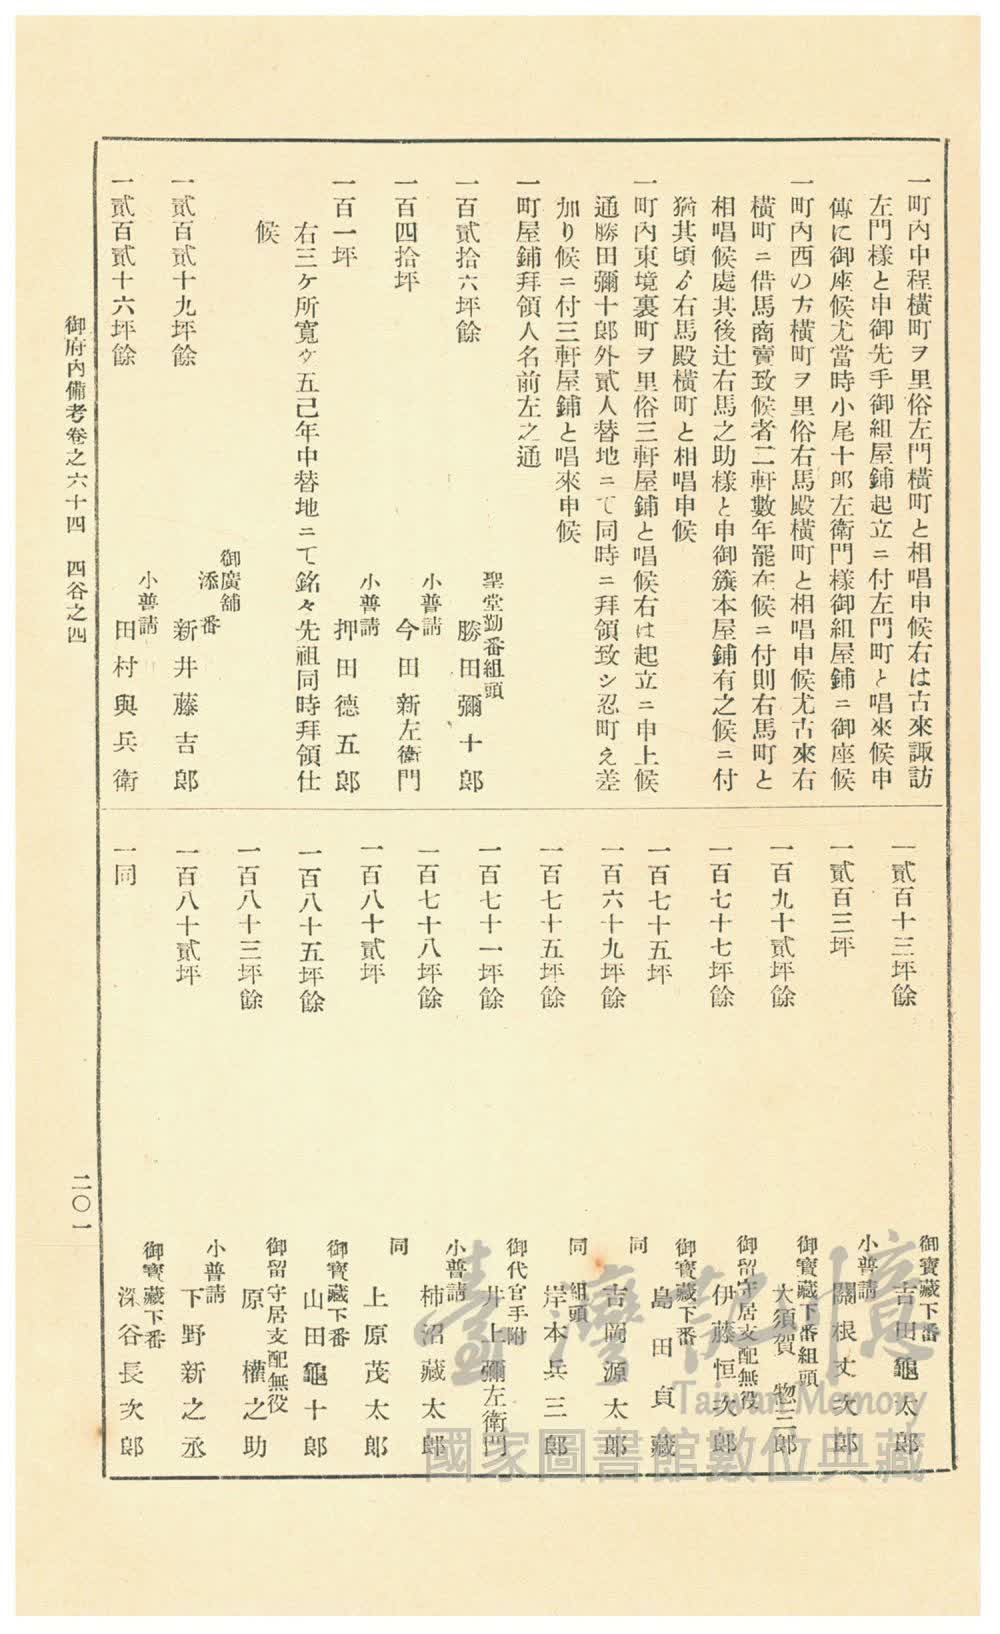 一町內中程橫町ヲ里俗左門橫町と相唱申候右は古來諏訪
左門樣と申御先手御組屋鋪起立ニ付左門町と唱來候申
傳に御座候尤當時小尾十郎左衛門樣御組屋鋪ニ御座候
一町內西の方橫町ヲ里俗右馬殿橫町と相唱申候尤古來右
橫町ニ借馬商賣致候者二軒數年罷在候ニ付則右馬町と
相唱候處其後辻右馬之助樣と申御籏本屋鋪有之候ニ付
猶其頃ゟ右馬殿橫町と相唱申候
一町內東境裏町ヲ里俗三軒屋鋪と唱候右は起立ニ申上候
通勝田彌十郎外貳人替地ニて同時ニ拜領致シ忍町え差
加り候ニ付三軒屋鋪と唱來申候
一町屋鋪拜領人名前左之通
一百貳拾六坪餘
聖堂勤番組頭
勝田彌十郎
一百四拾坪
小普請
今田新左衞門
一百一坪
小普請
押田德五郎
右三ケ所寬ヴ五己年中替地ニて銘々先祖同時拜領仕
候
一貳百貳十九坪餘
御廣舖
添番
新井藤吉郎
一貳百貳十六坪餘
小普請
田村與兵衛
一貳百十三坪餘
御寶藏下番
吉田龜太郎
一貳百三坪
小普請
關根丈次郎
一百九十貳坪餘
御寶藏下番組頭
大須賀惣三郎
一百七十七坪餘
御留守居支配無役
伊藤恒次郎
一百七十五坪
御寶藏下番
島田貞藏
一百六十九坪餘
同
吉岡源太郎
一百七十五坪餘
同組頭
岸本兵三郎
一百七十一坪餘
御代官手附
井上彌左衛門
一百七十八坪餘
小普請
柿沼藏太郎
一百八十貳坪
同
上原茂太郎
一百八十五坪餘
御寶藏下番
山田龜十郎
一百八十三坪餘
御留守居支配無役
原權之助
一百八十貳坪
小普請
下野新之丞
一同
御寶藏下番
深谷長次郎
御府內備考卷之六十四　四谷之四
二〇一
臺灣記憶
Taiwan Memory
國家圖書館數位典藏